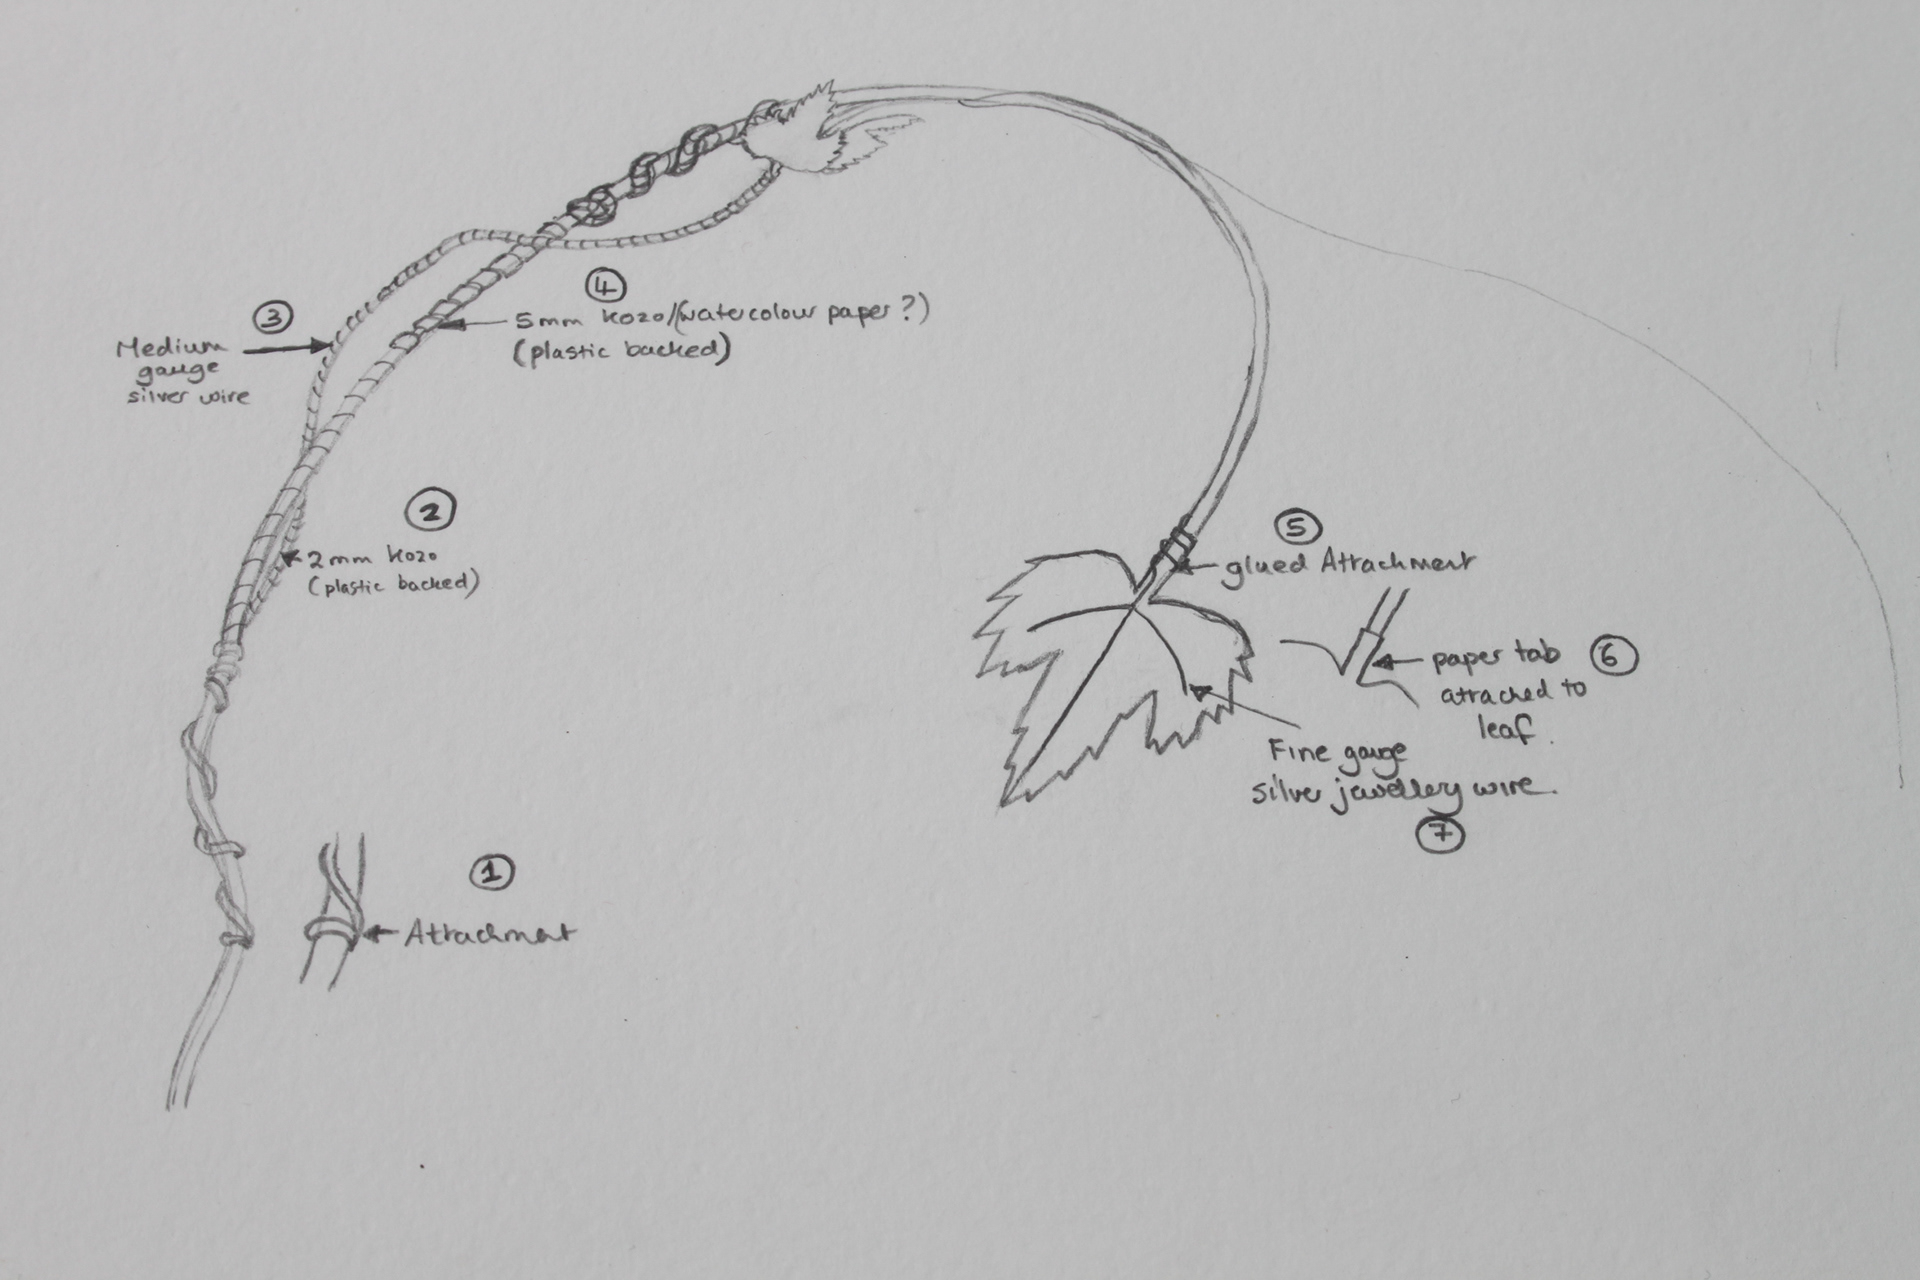 3
Medium
gauge
silver wire
4
5mm kozo/(watercolour paper?)
(plastic backed)
2
2mm kozo
(plastic backed)
1
Attachment
5
glued Attachment
6
paper tab
attached to
leaf.
Fine gauge
silver jewellery wire.
7